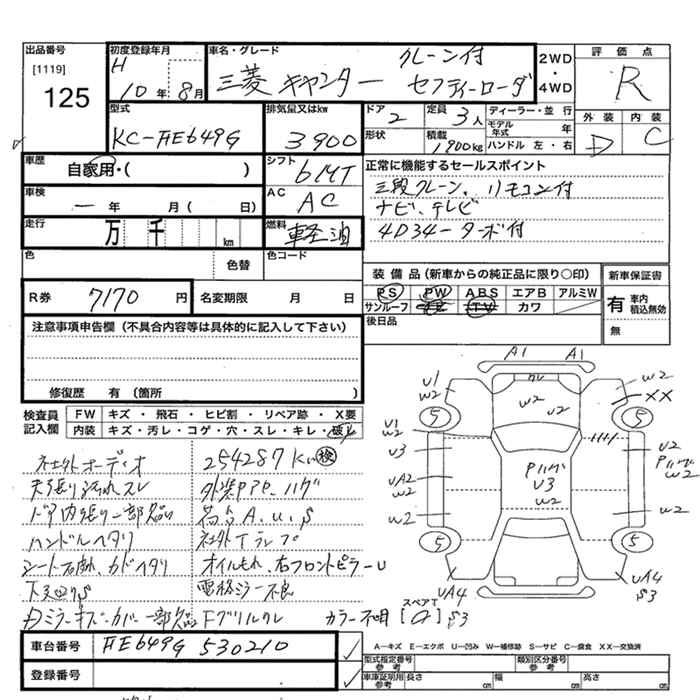 出品番号
[1119]
125
初度登録年月
H 10年 8月
車名・グレード
クレーン付
三菱 キャンター セフティーローダ
2WD
・
4WD
評価点
R
外装 内装
D C
型式
KC-FE649G
排気量又はkw
3900
ドア
2
定員
3人
形状
積載
1900kg
ディーラー・並行
モデル年式 年
ハンドル 左・右
車歴
自家用・( )
シフト
6MT
車検
一年 月( 日)
AC
AC
正常に機能するセールスポイント
三段クレーン、リモコン付
ナビ、テレビ
4D34-ターボ付
走行
万 千 km
燃料
軽油
色
色替
色コード
装備品(新車からの純正品に限り○印)
PS PW ABS エアB アルミW
サンルーフ カワ TV
後日品
新車保証書
有 車内積込無効
無
R券
7170円
名変期限 月 日
注意事項申告欄(不具合内容等は具体的に記入して下さい)
修復歴 有(箇所 )
検査員記入欄
FW キズ・飛石・ヒビ割・リペア跡・X要
内装 キズ・汚レ・コゲ・穴・スレ・キレ・破レ
社外オーディオ
254287km 検
天張り汚れスレ
ドア内張り一部欠品
ハンドルヘタリ
社外Tランプ
オイルもれ、右フロントピラーU
電格ミラー不良
カラー不明
スペアT
S3
A1 A1
U1
W2
クレ
W2
U2
W2
XX
5
5
U1
W2
U3
UA2
W2
W2
U3
W2
U2
W2
W2
5
5
UA4
S3
UA4
S3
車台番号
FE649G 530210
登録番号
A―キズ E―エクボ U―凹み W―補修跡 S―サビ C―腐食 XX―交換済
型式指定番号 参考
類別区分番号 参考
車庫証明用 参考
長さ cm
幅 cm
高さ cm